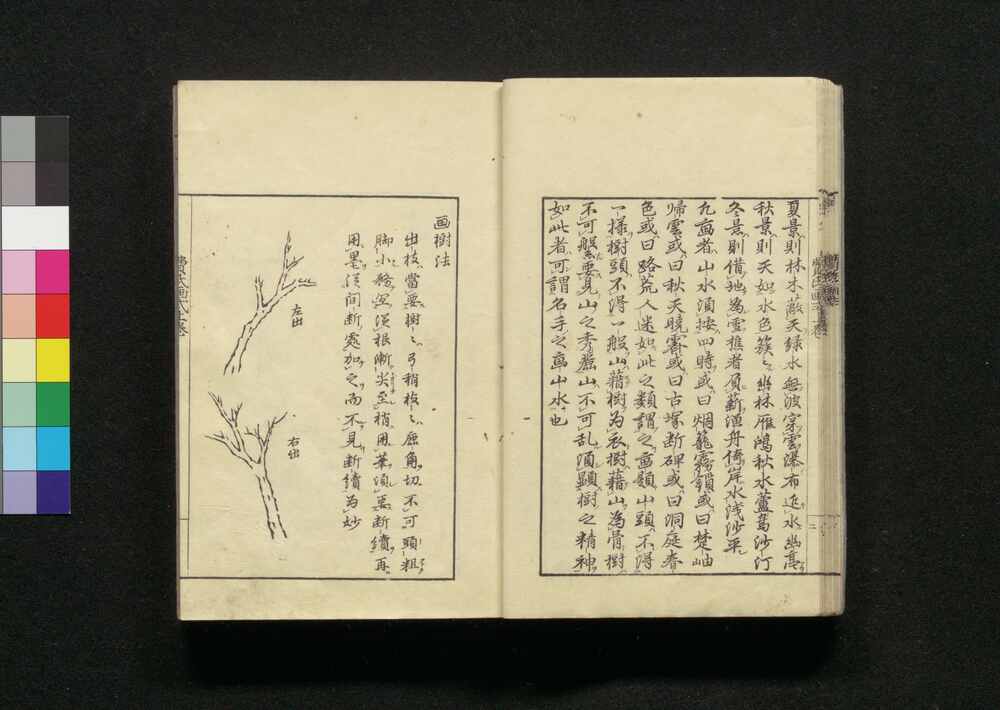 夏景則林木蔽天緑水無波穿雲瀑布近水幽亭
秋景則天如水色簇〻幽林雁鴻秋水蘆島沙汀
冬景則借地為雪樵者負薪漁舟倚岸水浅沙平
凡画者山水須按四時或曰烟籠霧鎖或曰楚岫
帰雲或曰秋天暁霽或曰古塚断碑或曰洞庭春
色或曰路荒人迷如此之類謂之画題山頭不得
一様樹頭不得一般山藉樹為衣樹藉山為骨樹
不可繁要見山之秀麗山不可乱須顕樹之精神
如此者可謂名手之画山水也
画樹法
出枝當要樹〻弓稍枝〻鹿角切不可頭粗
脚小務宜須根漸尖至梢用筆須要断續再
用墨従間断處加之而不見断續為妙
左出
右出